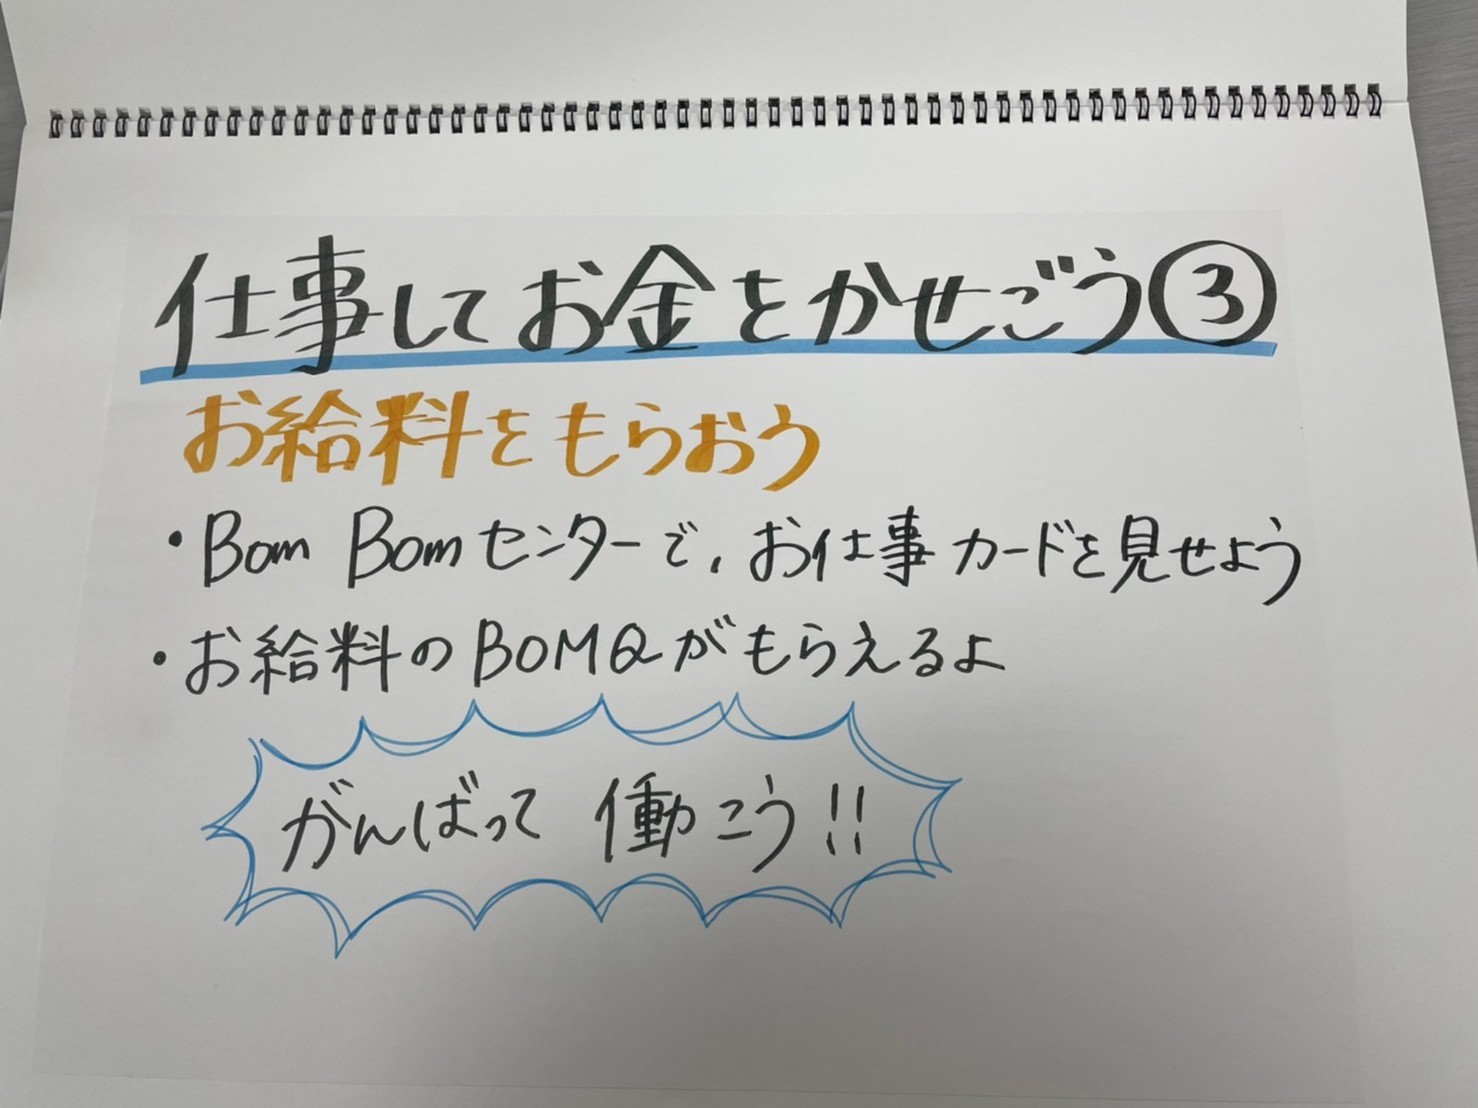 仕事してお金をかせごう③
お給料をもらおう
・Bom Bomセンターで、お仕事カードを見せよう
・お給料のBOMQがもらえるよ
がんばって 働こう!!